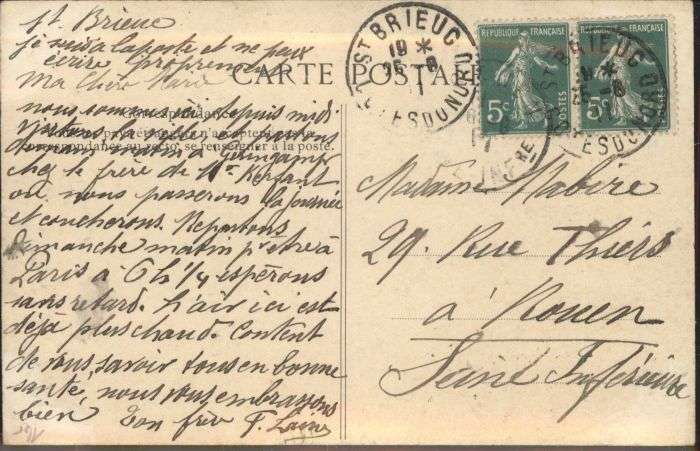 St. Brieuc
je suis à la poste et ne peux
écrire proprement
Ma Chère Marie
CARTE POSTALE
nous sommes ici depuis midi
Correspondance
pays n'acceptent pas
correspondance au recto, se renseigner à la poste.
demain matin à Guingamp
chez le frère de Mr Kerfant
où nous passerons la journée
et coucherons. Repartons
dimanche matin pr être à
Paris à 6h 1/4 espérons
sans retard. L'air ici est
déjà plus chaud. Content
de vous savoir tous en bonne
santé, nous vous embrassons
bien Ton frère F.
ST BRIEUC
CÔTES DU NORD
RÉPUBLIQUE FRANÇAISE
5c
POSTES
RÉPUBLIQUE FRANÇAISE
5c
POSTES
ST BRIEUC
CÔTES DU NORD
Madame Mabire
29. Rue Thiers
à Rouen
Seine Inférieure